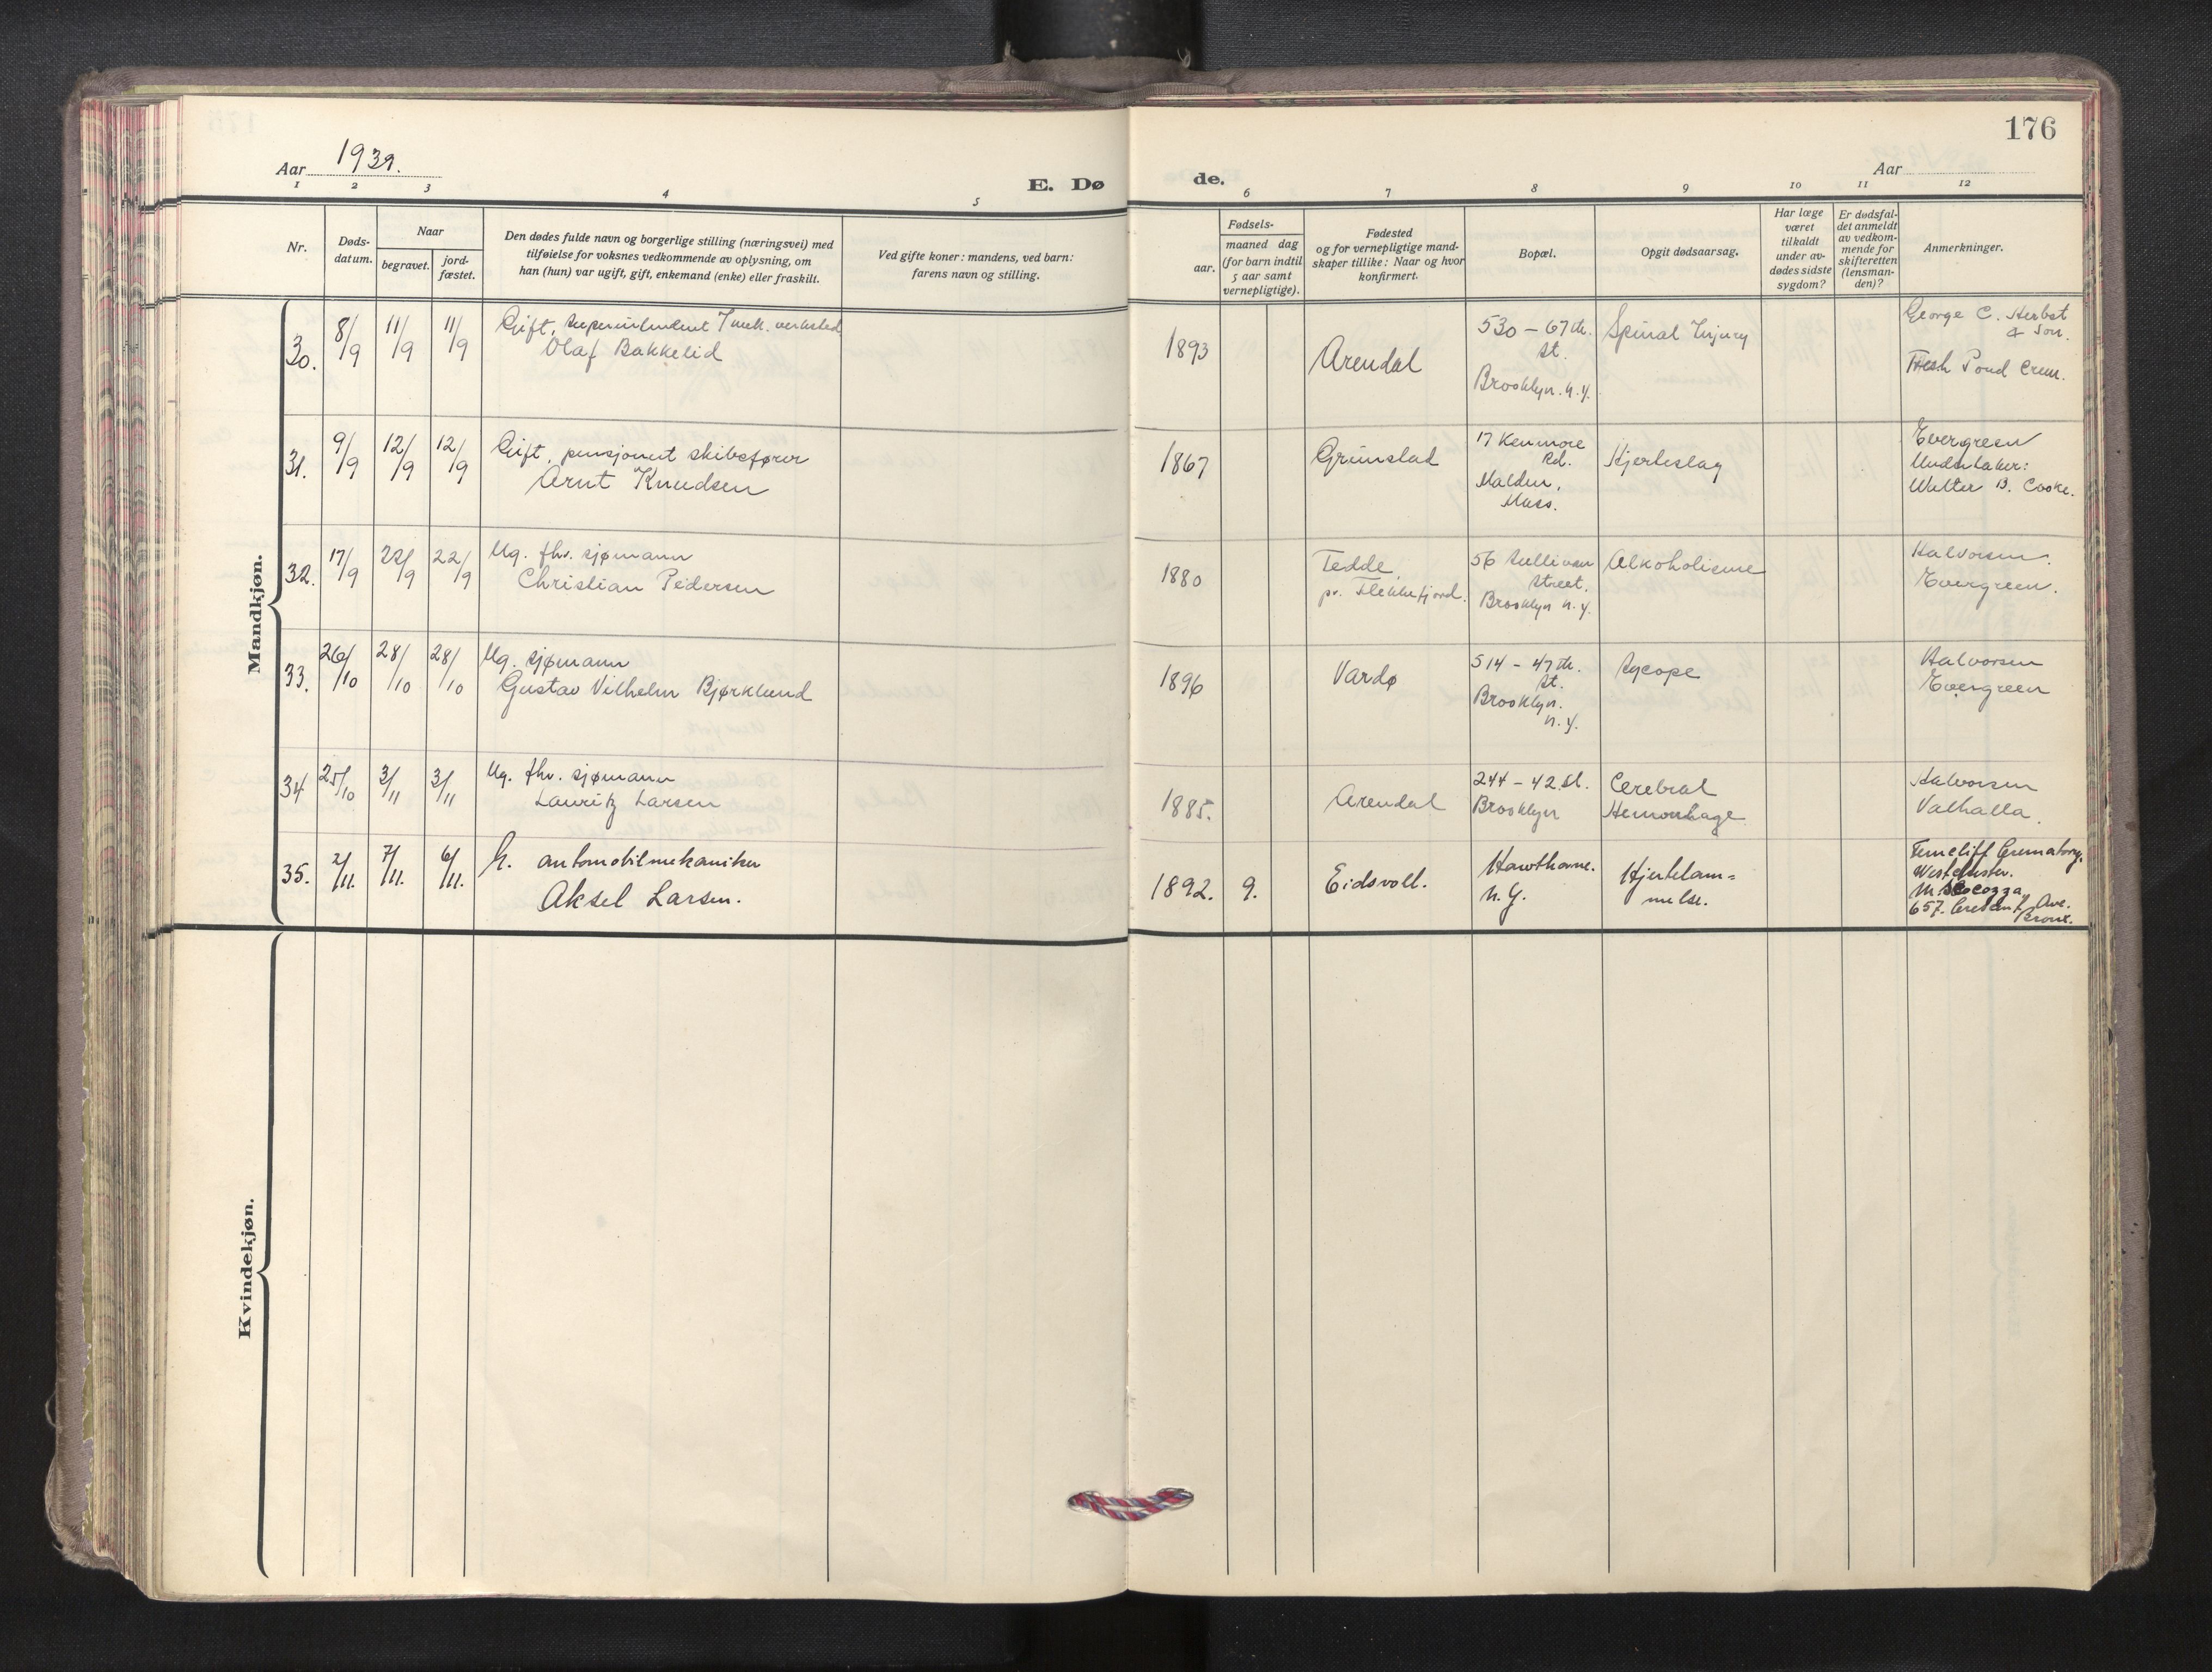 176
Aar 1939.
Aar
E. Dø
de.
1 2 3 4 5 6 7 8 9 10 11 12
Nr.
Døds-
datum.
Naar
begravet.
jord-
fæstet.
Den dødes fulde navn og borgerlige stilling (næringsvei) med
tilføielse for voksnes vedkommende av oplysning, om
han (hun) var ugift, gift, enkemand (enke) eller fraskilt.
Ved gifte koner: mandens, ved barn:
farens navn og stilling.
Fødsels-
aar.
maaned dag
(for barn indtil
5 aar samt
vernepligtige).
Fødested
og for vernepligtige mand-
skaper tillike: Naar og hvor
konfirmert.
Bopæl.
Opgit dødsaarsag.
Har læge
været
tilkaldt
under av-
dødes sidste
sygdom?
Er dødsfal-
det anmeldt
av vedkom-
mende for
skifteretten
(lensman-
den)?
Anmerkninger.
Mandkjøn.
30.
8/9
11/9
11/9
Gift, superintendent i mek. verksted
Olaf Bakkelid
1893
Arendal
530 - 67th.
St.
Brooklyn. N.Y.
Spinal Injury
George C. Herbst
& Son.
Fresh Pond Crem.
31.
9/9
12/9
12/9
Gift, pensjonert skibsfører
Arnt Knudsen
1867
Grimstad
17 Kenmore
Rd.
Malden,
Mass.
Hjerteslag
Evergreen
Undertaker:
Walter B. Cooke.
32.
17/9
22/9
22/9
Ug. fhv. sjømann
Christian Pedersen
1880
Tedde
pr. Flekkefjord.
56 Sullivan
Street.
Brooklyn N.Y.
Alkoholisme
Halvorsen.
Evergreen.
33.
26/10
28/10
28/10
Ug. sjømann
Gustav Vilhelm Bjørklund
1896
Vardø
514 - 47th.
St.
Brooklyn.
N.Y.
Sycope
Halvorsen
Evergreen
34
25/10
3/11
3/11
Ug. fhv. sjømann
Lauritz Larsen
1885.
Arendal
244 - 42 St.
Brooklyn
Cerebral
Hemorrhage
Halvorsen
Valhalla.
35.
2/11.
7/11.
6/11.
G. automobilmekaniker
Aksel Larsen.
1892. 9.
Eidsvoll.
Hawthorne.
N.Y.
Hjertelam=
melse.
Ferncliff Crematory.
Westchester.
M. Scocozza
657. Crescent Ave.
Bronx.
Kvindekjøn.